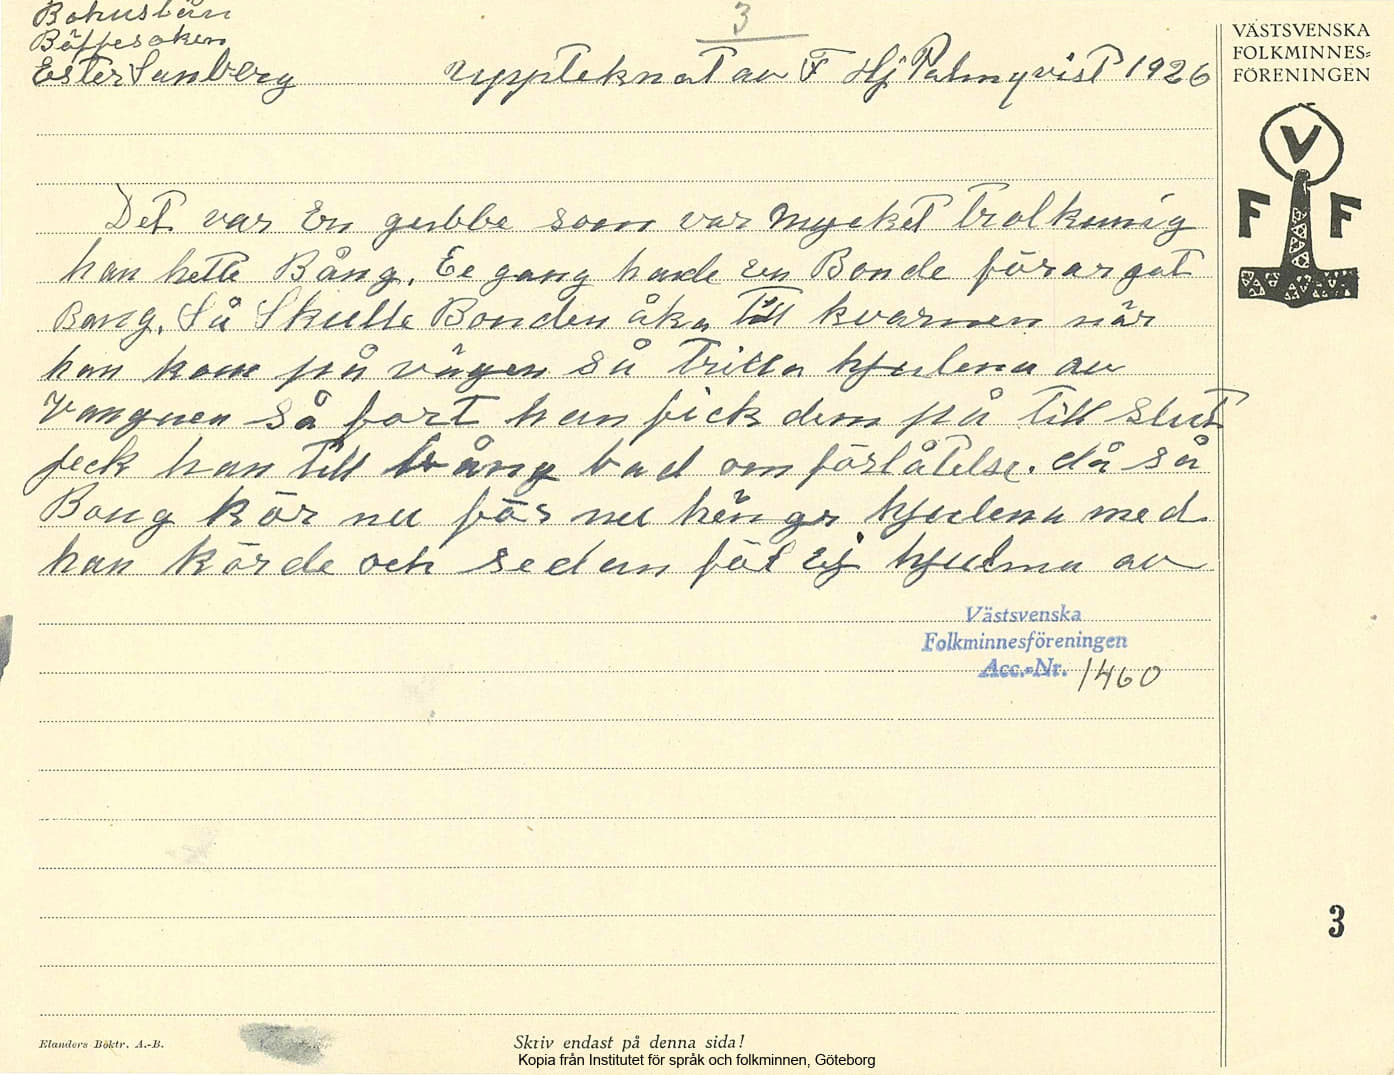 3
Bohuslän
Bäffesoken
Ester Sanberg
Uppteknat av F Hj Palmqvist 1926
VÄSTSVENSKA
FOLKMINNES=
FÖRENINGEN
V
F F
Det var En gubbe som var Mycket trolkunig
han hette Bång. Ee gang hade en Bonde förargat
Bang. Så Skulle Bonden åka till kvarnen när
han kom på vägen så trilla hjulena av
Vangnen så fort han fick dem på till slut
feck han till bång bad om förlåtelse. då sa
Bong kör nu för nu hänger hjulena med
han körde och sedan föl Ej hjulena av
Västsvenska
Folkminnesföreningen
Acc.-Nr. 1460
3
Elanders Boktr. A.-B.
Skriv endast på denna sida!
Kopia från Institutet för språk och folkminnen, Göteborg